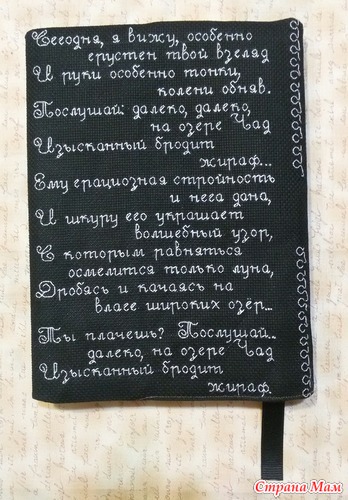 Сегодня, я вижу, особенно
грустен твой взгляд
И руки особенно тонки,
колени обняв.
Послушай: далеко, далеко,
на озере Чад
Изысканный бродит
жираф...
Ему грациозная стройность
и нега дана,
И шкуру его украшает
волшебный узор,
С которым равняться
осмелится только луна,
Дробясь и качаясь на
влаге широких озёр...
Ты плачешь? Послушай..
далеко, на озере Чад
Изысканный бродит
жираф.
Страна Мам